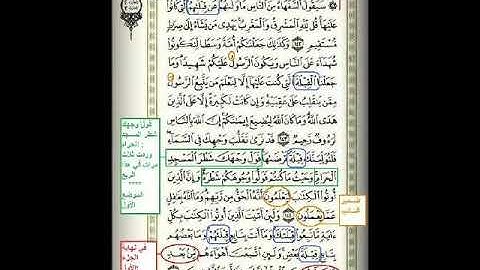 ۞ سَيَقُولُ السُّفَهَاءُ مِنَ النَّاسِ مَا وَلَّىٰهُمْ عَن قِبْلَتِهِمُ الَّتِي كَانُوا
عَلَيْهَا قُل لِّلَّهِ الْمَشْرِقُ وَالْمَغْرِبُ يَهْدِي مَن يَشَاءُ إِلَىٰ صِرَٰطٍ
مُّسْتَقِيمٍ ١٤٢ وَكَذَٰلِكَ جَعَلْنَٰكُمْ أُمَّةً وَسَطًا لِّتَكُونُوا
شُهَدَاءَ عَلَى النَّاسِ وَيَكُونَ الرَّسُولُ عَلَيْكُمْ شَهِيدًا وَمَا
جَعَلْنَا الْقِبْلَةَ الَّتِي كُنتَ عَلَيْهَا إِلَّا لِنَعْلَمَ مَن يَتَّبِعُ الرَّسُولَ
مِمَّن يَنقَلِبُ عَلَىٰ عَقِبَيْهِ وَإِن كَانَتْ لَكَبِيرَةً إِلَّا عَلَى الَّذِينَ
هَدَى اللَّهُ وَمَا كَانَ اللَّهُ لِيُضِيعَ إِيمَٰنَكُمْ إِنَّ اللَّهَ بِالنَّاسِ
لَرَءُوفٌ رَّحِيمٌ ١٤٣ قَدْ نَرَىٰ تَقَلُّبَ وَجْهِكَ فِي السَّمَاءِ
فَلَنُوَلِّيَنَّكَ قِبْلَةً تَرْضَىٰهَا فَوَلِّ وَجْهَكَ شَطْرَ الْمَسْجِدِ
الْحَرَامِ وَحَيْثُ مَا كُنتُمْ فَوَلُّوا وُجُوهَكُمْ شَطْرَهُ وَإِنَّ الَّذِينَ
أُوتُوا الْكِتَٰبَ لَيَعْلَمُونَ أَنَّهُ الْحَقُّ مِن رَّبِّهِمْ وَمَا اللَّهُ بِغَٰفِلٍ
عَمَّا يَعْمَلُونَ ١٤٤ وَلَئِنْ أَتَيْتَ الَّذِينَ أُوتُوا الْكِتَٰبَ بِكُلِّ
ءَايَةٍ مَّا تَبِعُوا قِبْلَتَكَ وَمَا أَنتَ بِتَابِعٍ قِبْلَتَهُمْ وَمَا بَعْضُهُم
بِتَابِعٍ قِبْلَةَ بَعْضٍ وَلَئِنِ اتَّبَعْتَ أَهْوَاءَهُم مِّن بَعْدِ
فول وجهك
شطر المسجد
الحرام
وردت ثلاث
مرات في هذا
الربع
****
الموضع
الأول
في نهاية
الجزء
الأول